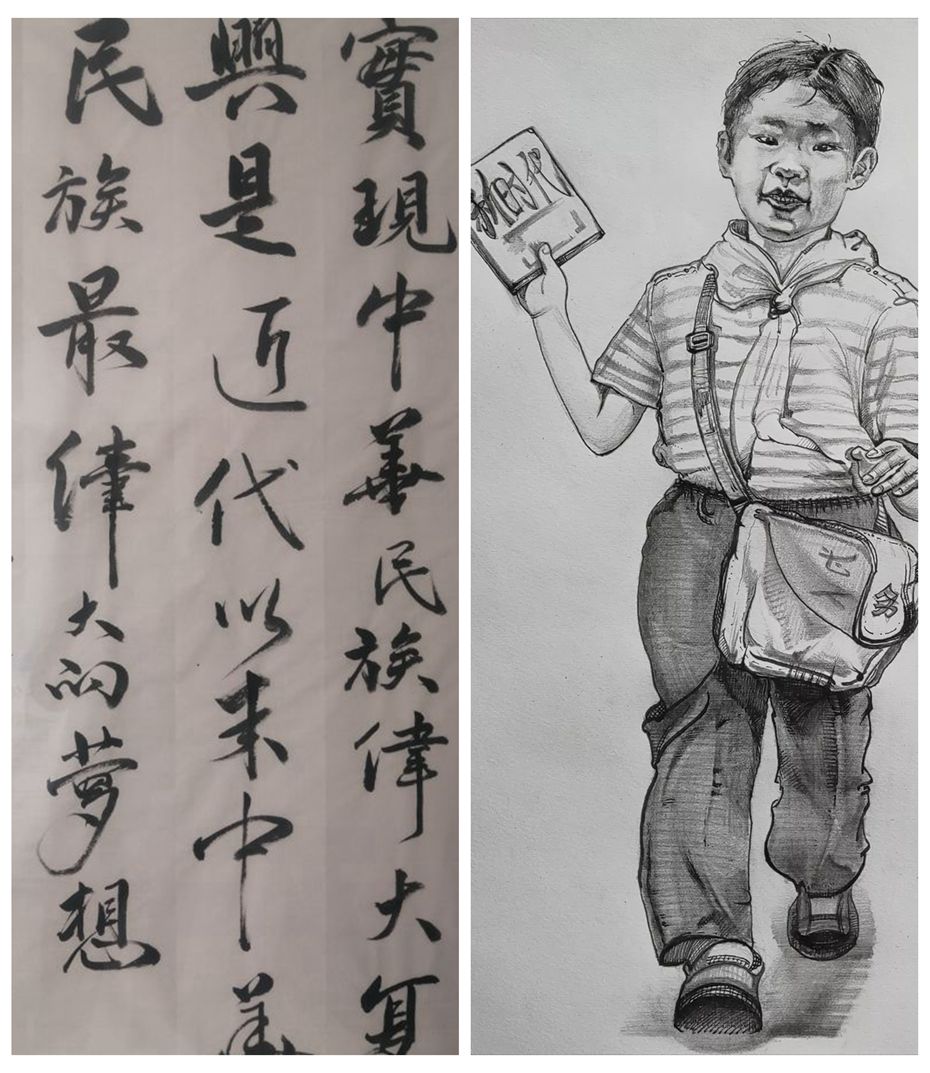 實現中華民族偉大复
興是近代以来中華
民族最偉大的夢想
新时代
务